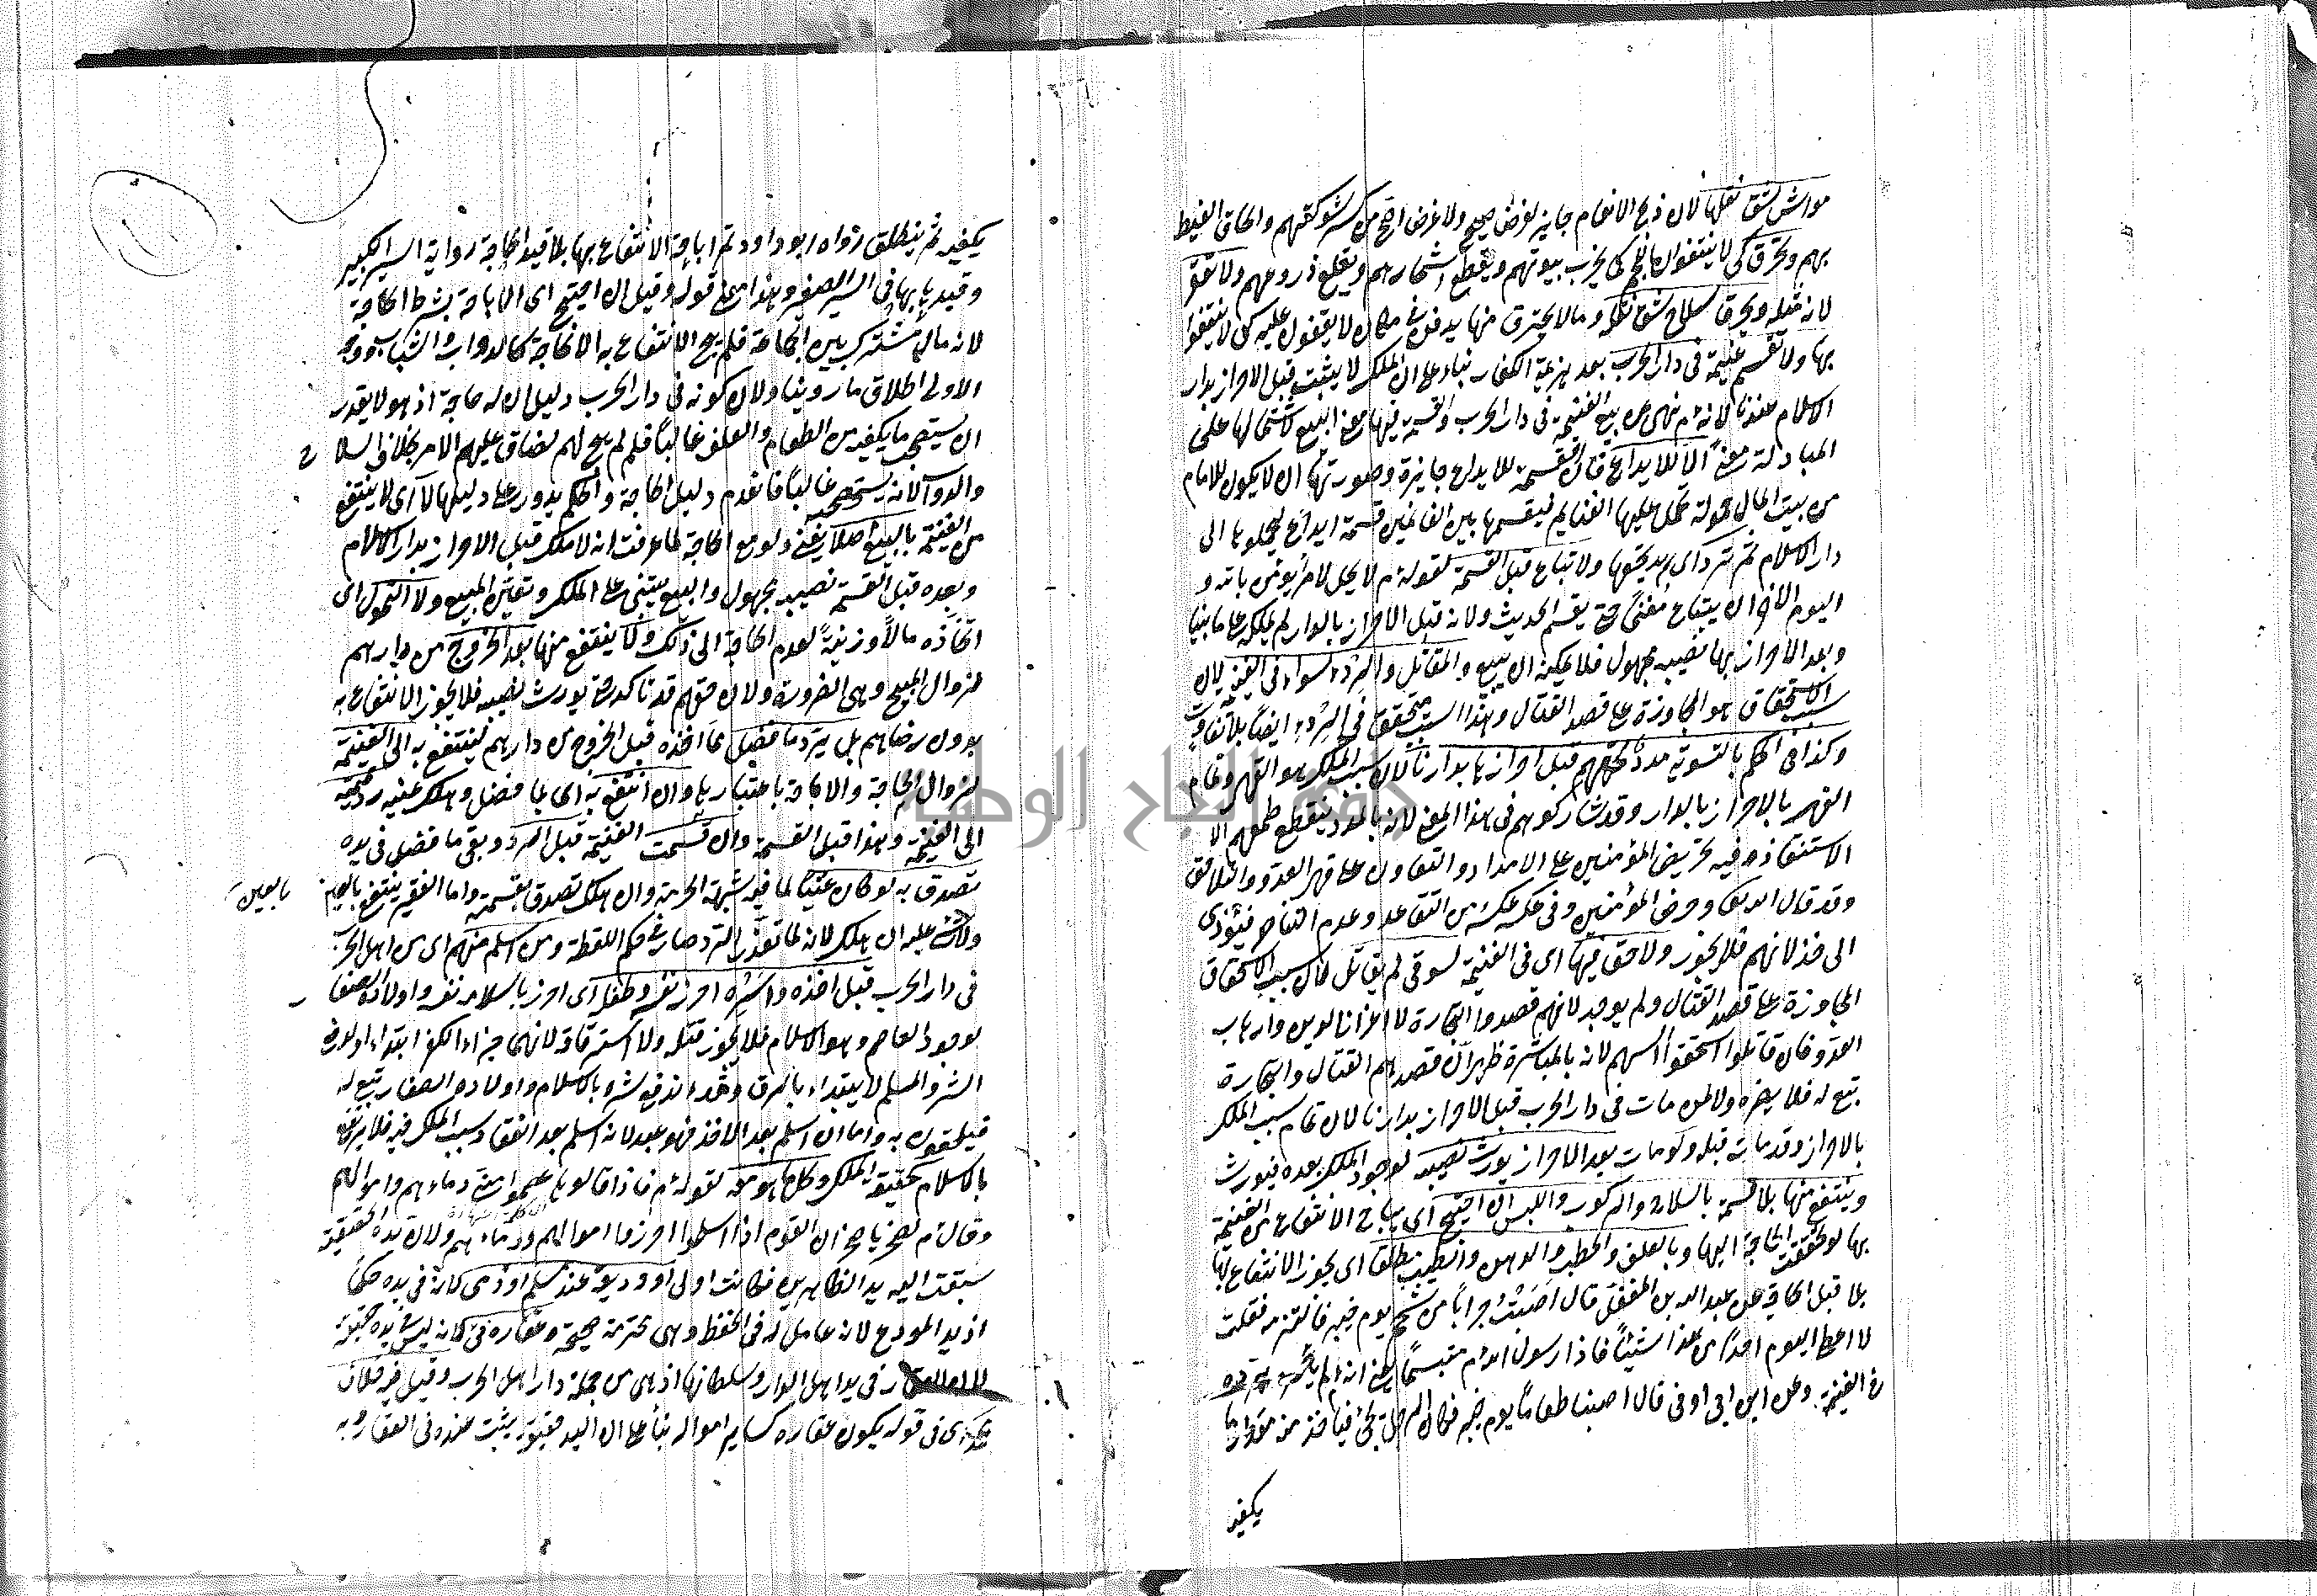 مواش شق نقلها لان ذبح الانعام جايز لغرض صحيح ولا غرض اصح من كسر شوكتهم والحاق الغيظ
بهم وتحرق كى لا ينتفعوا باللحم كما يخرب بيوتهم ويقطع اشجارهم ويقلع زروعهم ولا تعقر
لانه مثلة ويحرق سلاح شق نقله وما لا يحترق منها يدفن فى مكان لا يقفون عليه كى لا ينتفعوا
بها ولا تقسم غنيمة فى دار الحرب بعد هزيمة الكفار بناء على ان الملك لا يثبت قبل الاحراز بدار
الاسلام عندنا لانه م نهى عن بيع الغنيمة فى دار الحرب والقسمة فيها معنى البيع لاشتمالها على
المبادلة معنى الا للايداع فان القسمة للايداع جايزة وصورتها ان لا يكون للامام
من بيت المال حمولة تحمل عليها الغنايم فيقسمها بين الغانمين قسمة ايداع ليحملوها الى
دار الاسلام ثم تُرد اى يستردها ولا تباع قبل القسمة لقوله م لا يحل لامرئ يؤمن بالله و
اليوم الآخر ان يبتاع مغنمًا حتى يقسم الحديث ولانه قبل الاحراز بالدار لم يملكه على ما بينا
وبعد الاحراز بها نصيبه مجهول فلا يمكنه ان يبيع والمقاتل والردء سواء فى الغنيمة لان
سبب الاستحقاق هو المجاوزة على قصد القتال وهذا السبب متحقق فى الردء ايضا بلا تفاوت
وكذا فى الحكم بالتسوية مدد لحقهم قبل احرازها بدارنا لان سبب الملك هو القهر وتمام
القهر بالاحراز بالدار وقد شاركوهم فى هذا المعنى لانه بالمدد ينقطع طمعهم الا
الاستنقاذ وفيه تحريض المؤمنين على الامداد والتعاون على قهر العدو والتلاحق
وقد قال الله تعالى وحرض المؤمنين وفى عكسه من التقاعد وعدم التناصر فيؤدى
الى خذلانهم فلا يجوز ولا حق فيها اى فى الغنيمة لسوقى لم يقاتل لان سبب الاستحقاق
المجاوزة على قصد القتال ولم يوجد لانهم قصدوا التجارة لا اعزاز الدين وارهاب
العدو فان قاتلوا استحقوا السهم لانه بالمباشرة ظهر ان قصدهم القتال والتجارة
تبع له فلا يضره ولا لمن مات فى دار الحرب قبل الاحراز بدارنا لان تمام سبب الملك
بالاحراز وقد مات قبله ولو مات بعد الاحراز يورث نصيبه لوجود الملك بعده فيورث
وينتفع منها بلا قسمة بالسلاح والركوب واللبس ان احتيج اى يباح الانتفاع من الغنيمة
بها لو تحققت الحاجة اليها وبالعلف والحطب والدهن والطيب مطلقا اى يجوز الانتفاع بها
بلا قيد الحاجة عن عبد الله بن المغفل قال اصبت جرابًا من شحم يوم خيبر فالتزمته فقلت
لا اعطى اليوم احدًا من هذا شيئًا فاذا رسول الله م متبسمًا
فى الغنيمة وعن ابن ابى اوفى قال اصبنا طعامًا يوم خيبر فكان الرجل يجئ فيأخذ منه مقدار ما
يكفيه
يكفيه ثم ينطلق رواه ابو داود ثم اباحة الانتفاع بها بلا قيد الحاجة رواية السير الكبير
وقيد اباحتها فى السير الصغير وهذا معنى قوله وقيل ان احتيج اى الاباحة بشرط الحاجة
لانه مال مشترك بين الجماعة فلم يبح الانتفاع به الا لحاجة كالدواب والثياب ووجه
الاولى اطلاق ما روينا ولان كونه فى دار الحرب دليل ان له حاجة اذ هو لا يقدر
ان يستصحب ما يكفيه من الطعام والعلف غالبًا فلو لم يبح لهم لضاق عليهم الامر بخلاف السلاح
والدواب لانه يستصحبه غالبًا فانعدم دليل الحاجة والحكم يدور على دليلها لا اى لا ينتفع
من الغنيمة بالبيع اصلا يعنى ولو مع الحاجة لما عرفت انه لا ملك قبل الاحراز بدار الاسلام
وبعده قبل القسمة نصيبه مجهول والبيع يبتنى على الملك وتعين المبيع ولا التمول اى
اتخاذه مالًا وزينةً لعدم الحاجة الى ذلك ولا ينتفع منها بعد الخروج من دارهم
لزوال المبيح وهى الضرورة ولان حقهم قد تأكد حتى يورث نصيبه فلا يجوز الانتفاع به
بدون رضاهم بل يرد ما فضل مما اخذه قبل الخروج من دارهم لينتفع به الى الغنيمة
لزوال الحاجة والاباحة باعتبارها وان انتفع به اى بما فضل وملك عينه رد قيمته
الى الغنيمة وهذا قبل القسمة وان قسمت الغنيمة قبل الرد وبقى ما فضل فى يده
تصدق به لو كان غنيًا لما فيه شبهة الحرمة وان هلك تصدق بقيمته واما الفقير ينتفع بالعين
بالعين
ولا شئ عليه ان هلك لانه لما تعذر الرد صار فى حكم اللقطة ومن اسلم منهم اى من اهل الحرب
فى دار الحرب قبل اخذه واسره احرز نفسه وطفله اى احرز بالاسلام نفسه واولاده الصغار
لوجود العاصم وهو الاسلام فلا يجوز قتله ولا استرقاقه لانهما جزاء الكفر ابتداء او لدفع
الشر والمسلم لا يبتداء بالرق وقد اندفع شره بالاسلام واولاده الصغار تبع له
فيلحقون به واما ان اسلم بعد الاخذ فهو عبد لانه اسلم بعد انعقاد سبب الملك فيه فلا
بالاسلام حقيقة الملك وكل ما هو معه لقوله م فاذا قالوها عصموا منى دماءهم واموالهم
وقال م لصخر يا صخر ان القوم اذا اسلموا احرزوا اموالهم ودماءهم ولان يده الحقيقية
سبقت اليه يد الظاهرين فكانت اولى او وديعة عند مسلم او ذمى لانه فى يده حكمًا
اذ يد المودع لانه عامل له فى الحفظ وهى محترمة صحيحة وعقاره فئ لانه ليس فى يده حقيقة
لان العقار فى يد اهل الدار وسلطانها اذ هى من جملة دار اهل الحرب وقيل فيه خلاف
محمد اى فى قوله يكون عقاره كساير امواله بناء على ان اليد حقيقة يثبت عنده فى العقار وبه